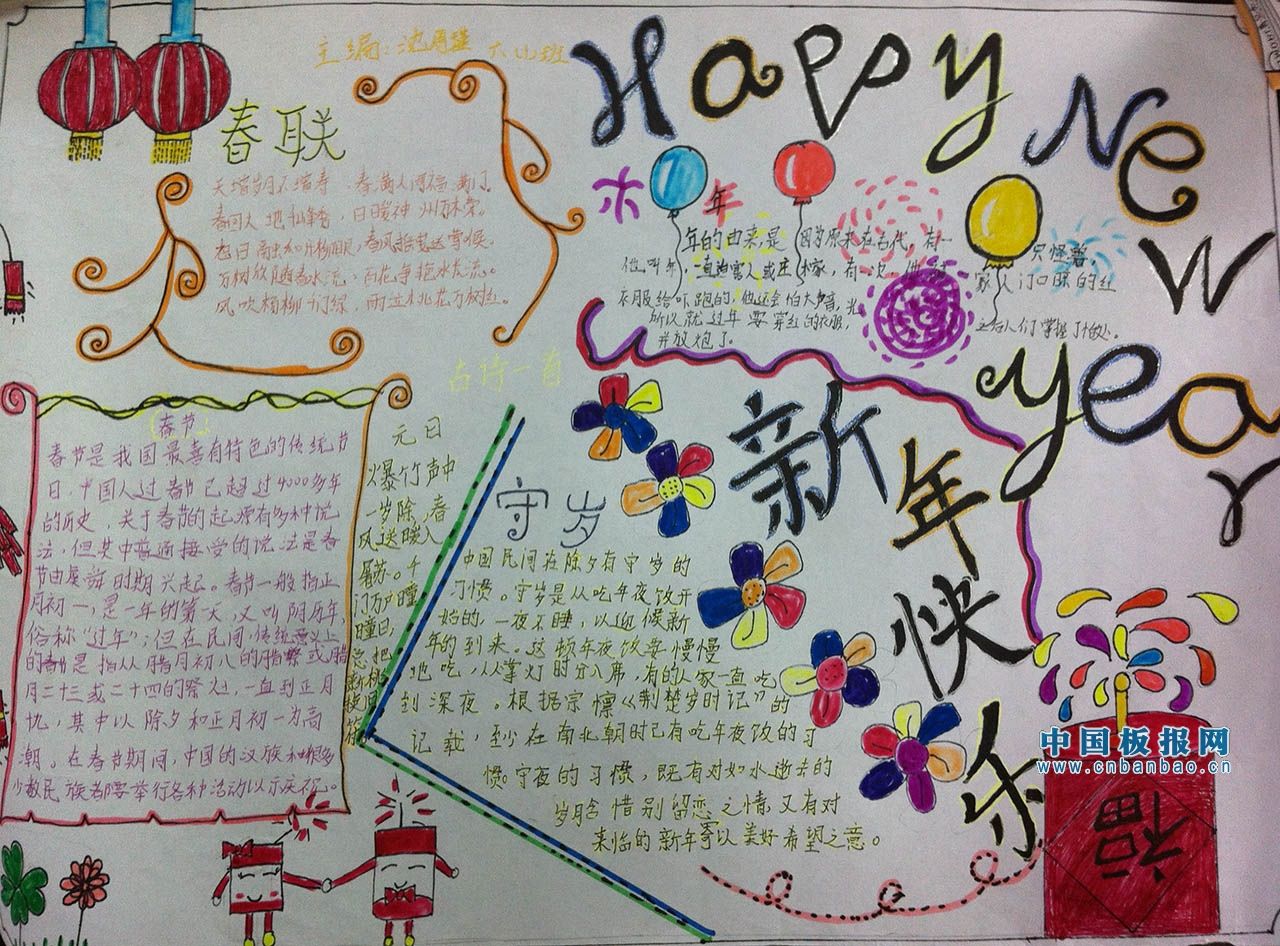 主编:沈 六(4)班
Happy New Year
春联
天增岁月人增寿、春满人间福满门。
日暖神州万木荣。
春风指花送
万树放 春水流，百花争艳水
风吹杨柳千门绿，雨 桃花万树红。
年
年的由来是因为原来在古代，有一只怪兽，
他叫年，一直 害人或庄稼家，有一次，他 家人门口晒的红
衣服给吓跑的，他还会怕大声音，光，之后人们掌握了
所以就过年要穿红的衣服，
并放炮了。
古诗一首
元日
爆竹声中
一岁除,春
风送暖入
屠苏。千
门万户曈
曈日,
总把
新桃
换旧
符
春节
春节是我国最喜有特色的传统节
日,中国人过春节已超过4000多年
的历史，关于春节的起源有多种说
法，但其中普遍接受的说法是春
节由虞舜时期兴起。春节一般指正
月初一,是一年的第一天,又叫阴历年,
俗称"过年";但在民间,传统意义上
的春节是指从腊月初八的腊祭或腊
月二十三或二十四的祭灶,一直到正月
其中以除夕和正月初一为高
潮。在春节期间,中国的汉族和很多
少数民族都要举行各种活动以示庆祝。
守岁
中国民间在除夕有守岁的
习惯。守岁是从吃年夜饭开
始的,一夜不睡,以迎候新
年的到来。这顿年夜饭要慢慢
地吃,从掌灯时分入席,有的人家一直吃
到深夜。根据宗懔《荆楚岁时记》的
记载,至少在南北朝时已有吃年夜饭的习
惯。守夜的习惯,既有对如水逝去的
岁月含惜别留恋之情又有对
来临的新年寄以美好希望之意。
新年快乐
福
中国板报网
www.cnbanbao.cn